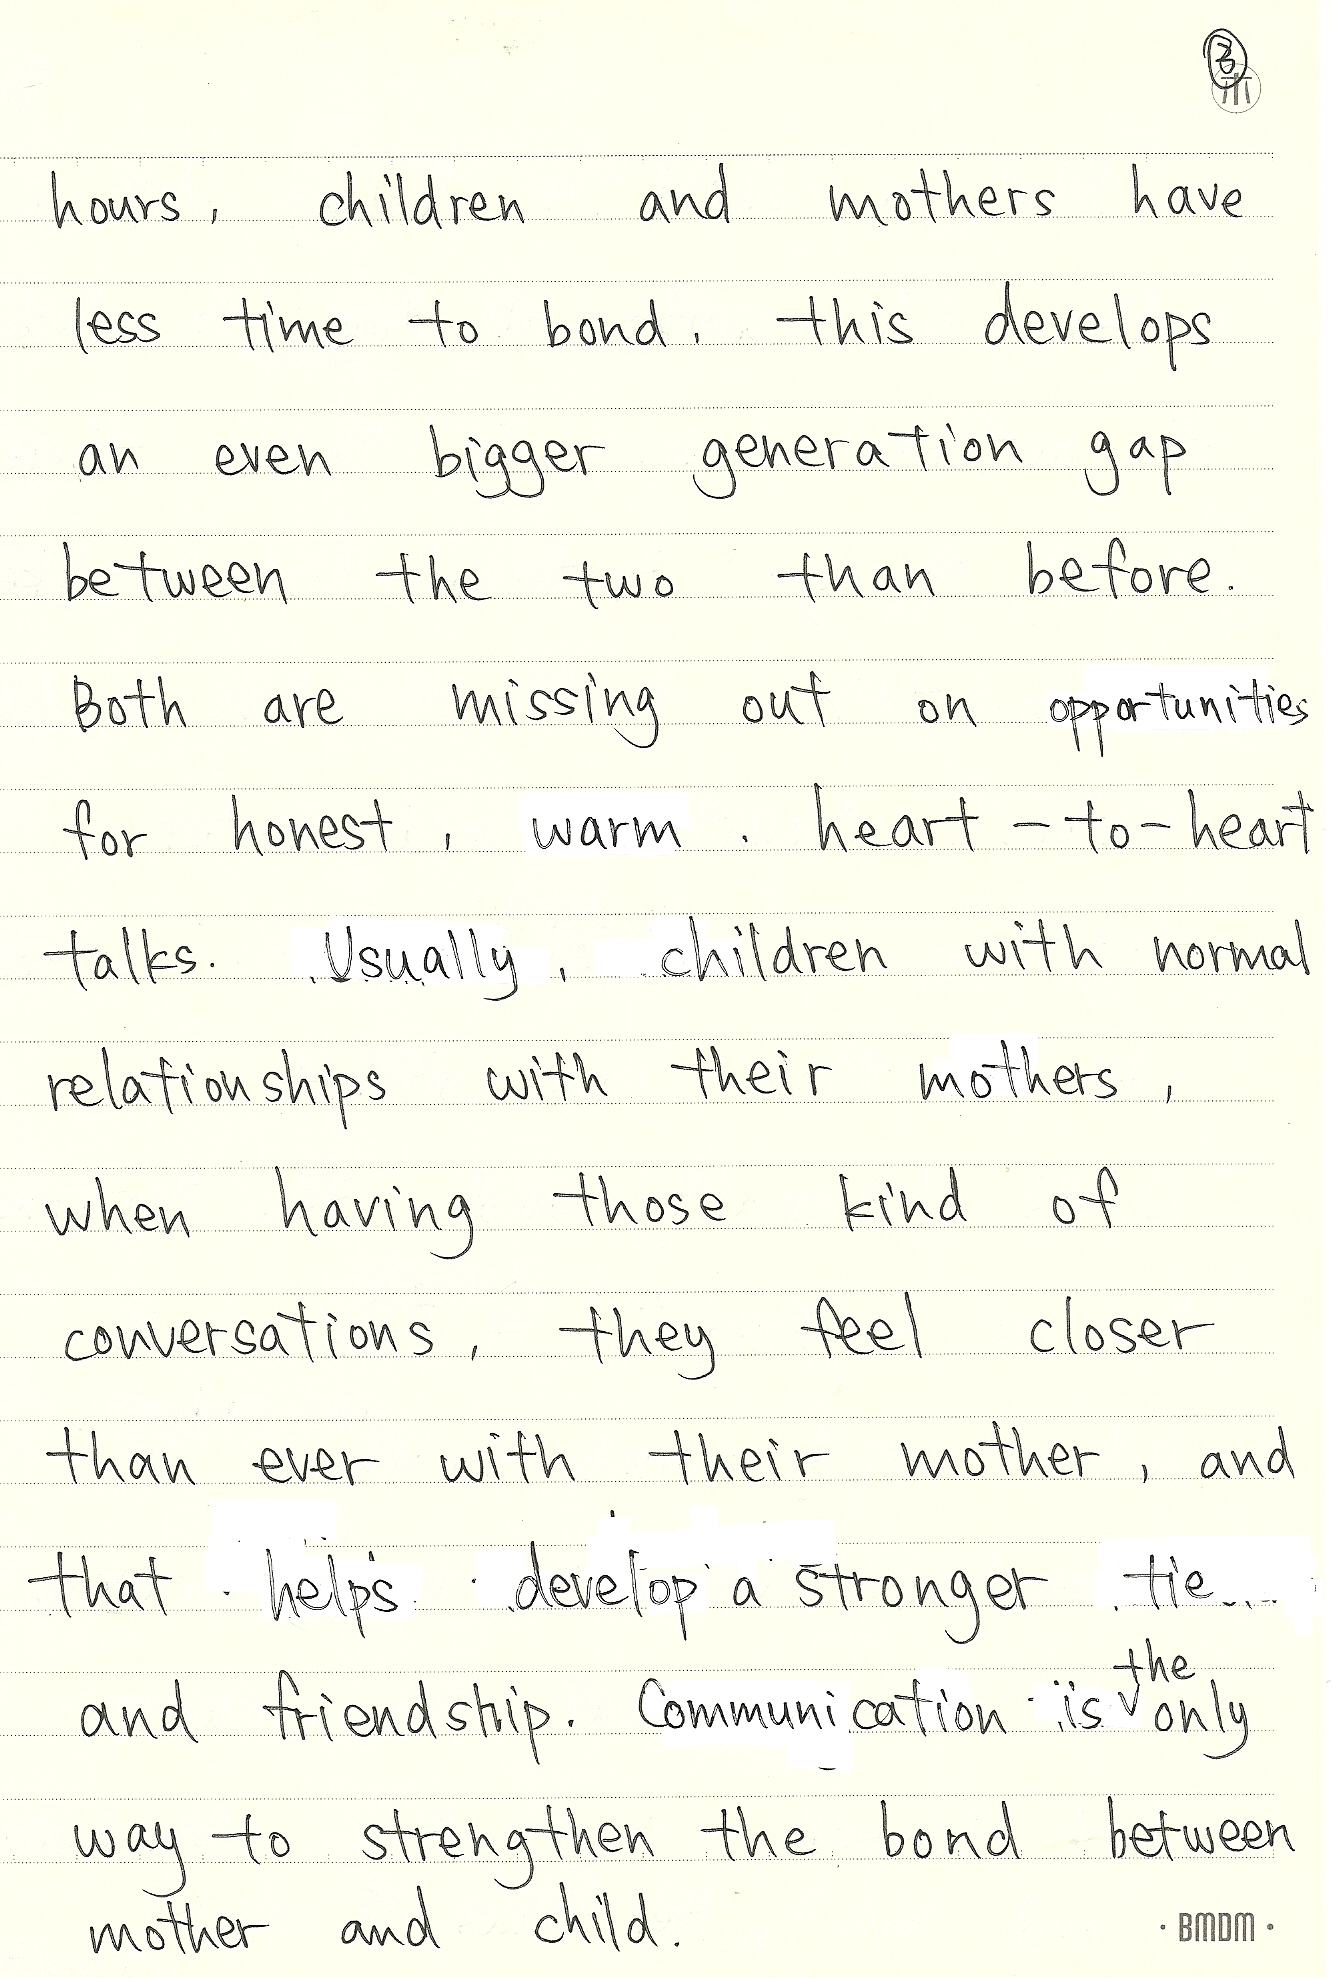 3
hours, children and mothers have
less time to bond, this develops
an even bigger generation gap
between the two than before.
Both are missing out on opportunities
for honest, warm. heart-to-heart
talks. Usually, children with normal
relationships with their mothers,
when having those kind of
conversations, they feel closer
than ever with their mother, and
that helps develop a stronger tie
and friendship. Communication is the only
way to strengthen the bond between
mother and child.
· BMDM ·